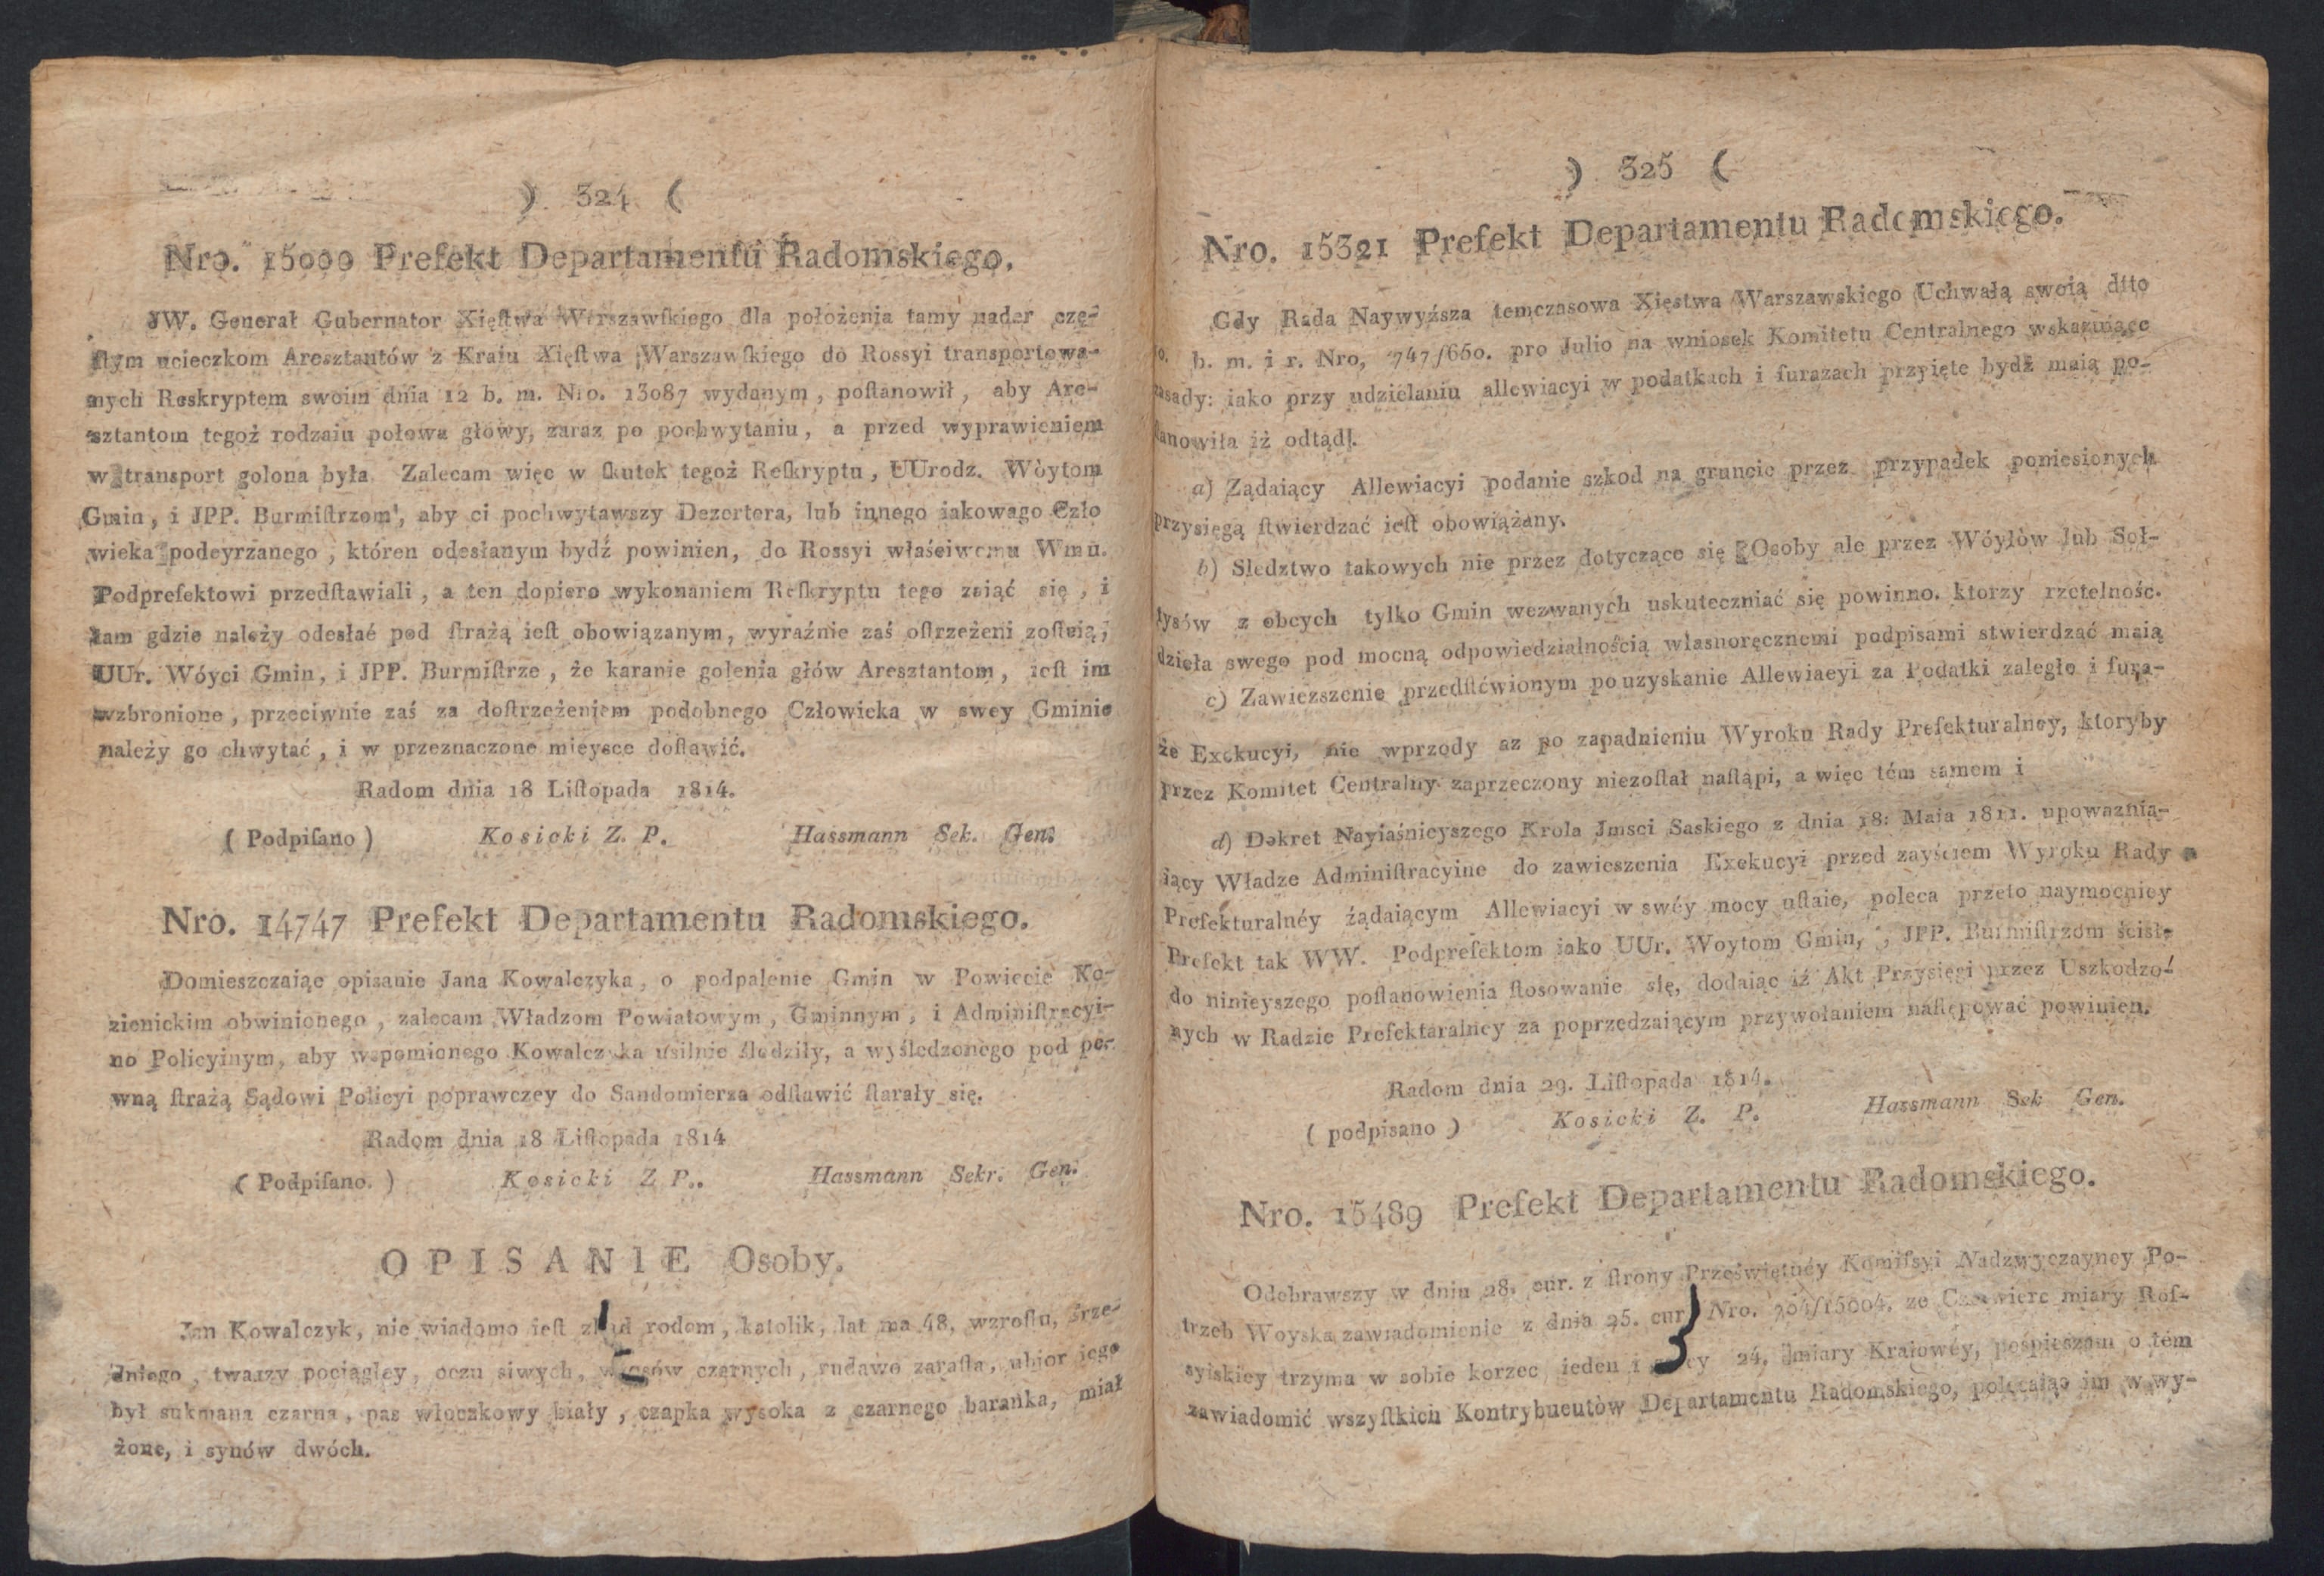 ) 324 (
Nro. 15000 Prefekt Departamentu Radomskiego.
JW. Generał Gubernator Xięſtwa Warszawſkiego dla położenia tamy nader czę-
ſtym ucieczkom Aresztantów z Kraiu Xięſtwa Warszawſkiego do Rossyi transportowa-
nych Reskryptem swoim dnia 12 b. m. Nro. 13087 wydanym, poſtanowił, aby Are-
sztantom tegoż rodzaiu połowa głowy, zaraz po pochwytaniu, a przed wyprawieniem
w transport golona była Zalecam więc w ſkutek tegoż Reſkryptu, UUrodz. Wòytom
Gmin, i JPP. Burmiſtrzom, aby ci pochwytawszy Dezertera, lub innego iakowago Czło
wieka podeyrzanego, któren odesłanym bydź powinien, do Rossyi właściwemu Wmu.
Podprefektowi przedſtawiali, a ten dopiero wykonaniem Reſkryptu tego zaiąć się, i
tam gdzie należy odesłać pod ſtrażą ieſt obowiązanym, wyraźnie zaś oſtrzeżeni zoſtaią,
UUr. Wóyci Gmin, i JPP. Burmiſtrze, że karanie golenia głów Aresztantom, ieſt im
wzbronione, przeciwnie zaś za doſtrzeżeniem podobnego Człowieka w swey Gminie
należy go chwytać, i w przeznaczone mieysce doſtawić.
Radom dnia 18 Liſtopada 1814.
( Podpiſano ) Kosicki Z. P. Hassmann Sek. Gen.
Nro. 14747 Prefekt Departamentu Radomskiego.
Domieszczaiąc opisanie Jana Kowalczyka, o podpalenie Gmin w Powiecie Ko-
zienickim obwinionego, zalecam Władzom Powiatowym, Gminnym, i Adminiſtracyi-
no Policyinym, aby wspomionego Kowalczyka usilnie śledziły, a wyśledzonego pod pe-
wną ſtrażą Sądowi Policyi poprawczey do Sandomierza odſtawić ſtarały się.
Radom dnia 18 Liſtopada 1814
( Podpiſano. ) Kosicki Z P.. Hassmann Sekr. Gen.
OPISANIE Osoby.
Jan Kowalczyk, nie wiadomo ieſt zkąd rodem, katolik, lat ma 48, wzroſtu, śrze-
dniego, twarzy pociągłey, oczu siwych, włosów czarnych, rudawo zaraſta, ubior iego
był sukmana czarna, pas włoczkowy biały, czapka wysoka z czarnego baranka, miał
żonę, i synów dwóch.
) 325 (
Nro. 15321 Prefekt Departamentu Radomskiego.
Gdy Rada Naywyższa temczasowa Xięstwa Warszawskiego Uchwałą swoią dtto
b. m. i r. Nro, 747/650. pro Julio na wniosek Komitetu Centralnego wskazuiące
zasady: iako przy udzielaniu allewiacyi w podatkach i furazach przyięte bydź maią po-
ſtanowiła iż odtąd.
a) Ządaiący Allewiacyi podanie szkod na gruncie przez przypadek poniesionych
przysięgą ſtwierdzać ieſt obowiązany.
b) Sledztwo takowych nie przez dotyczące się Osoby ale przez Wóytòw lub Soł-
tysów z obcych tylko Gmin wezwanych uskuteczniać się powinno. ktorzy rzetelnośc.
dzieła swego pod mocną odpowiedzialnością własnoręcznemi podpisami stwierdzać maią
c) Zawiezszenie przedſtćwionym po uzyskanie Allewiacyi za Podatki zaległe i fura-
że Exekucyi, nie wprzody az po zapadnieniu Wyroku Rady Prefekturalney, ktoryby
przez Komitet Centralny zaprzeczony niezoſtał naſtąpi, a więc tém samem i
d) Dekret Nayiaśnieyszego Krola Jmsci Saskiego z dnia 18: Maia 1811. upowaznia-
iący Władze Adminiſtracyine do zawieszenia Exekucyi przed zayściem Wyroku Rady
Prefekturalnéy źądaiącym Allewiacyi w swéy mocy uſtaie, poleca przeto naymocniey
Prefekt tak WW. Podprefektom iako UUr. Woytom Gmin, , JPP. Burmiſtrzom ściśle
do ninieyszego poſtanowienia ſtosowanie się, dodaiąc iż Akt Przysięgi przez Uszkodzo-
nych w Radzie Prefektaralney za poprzedzaiącym przywołaniem naſtępować powinien.
Radom dnia 29. Liſtopada 1814.
( podpisano ) Kosicki Z. P. Hassmann Sek Gen.
Nro. 15489 Prefekt Departamentu Radomskiego.
Odebrawszy w dniu 28. cur. z ſtrony Przeświętnéy Komiſsyi Nadzwyczayney Po-
trzeb Woyska zawiadomienie z dnia 25. cur Nro. ze Czetwierc miary Roſ-
syiskiey trzyma w sobie korzec ieden i 24. miary Kraiowéy, pośpieszam o tém
zawiadomić wszyſtkich Kontrybueutòw Departamentu Radomskiego, polecaiąc im w wy-